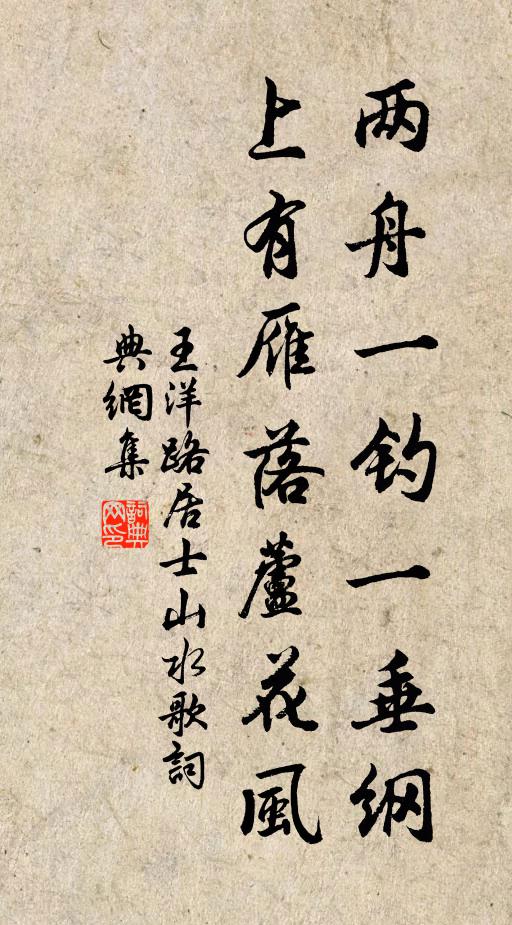 两舟一钓一垂纲
上有雁落蘆花風
王洋路居士山水歌詞
典網集
詞典網印